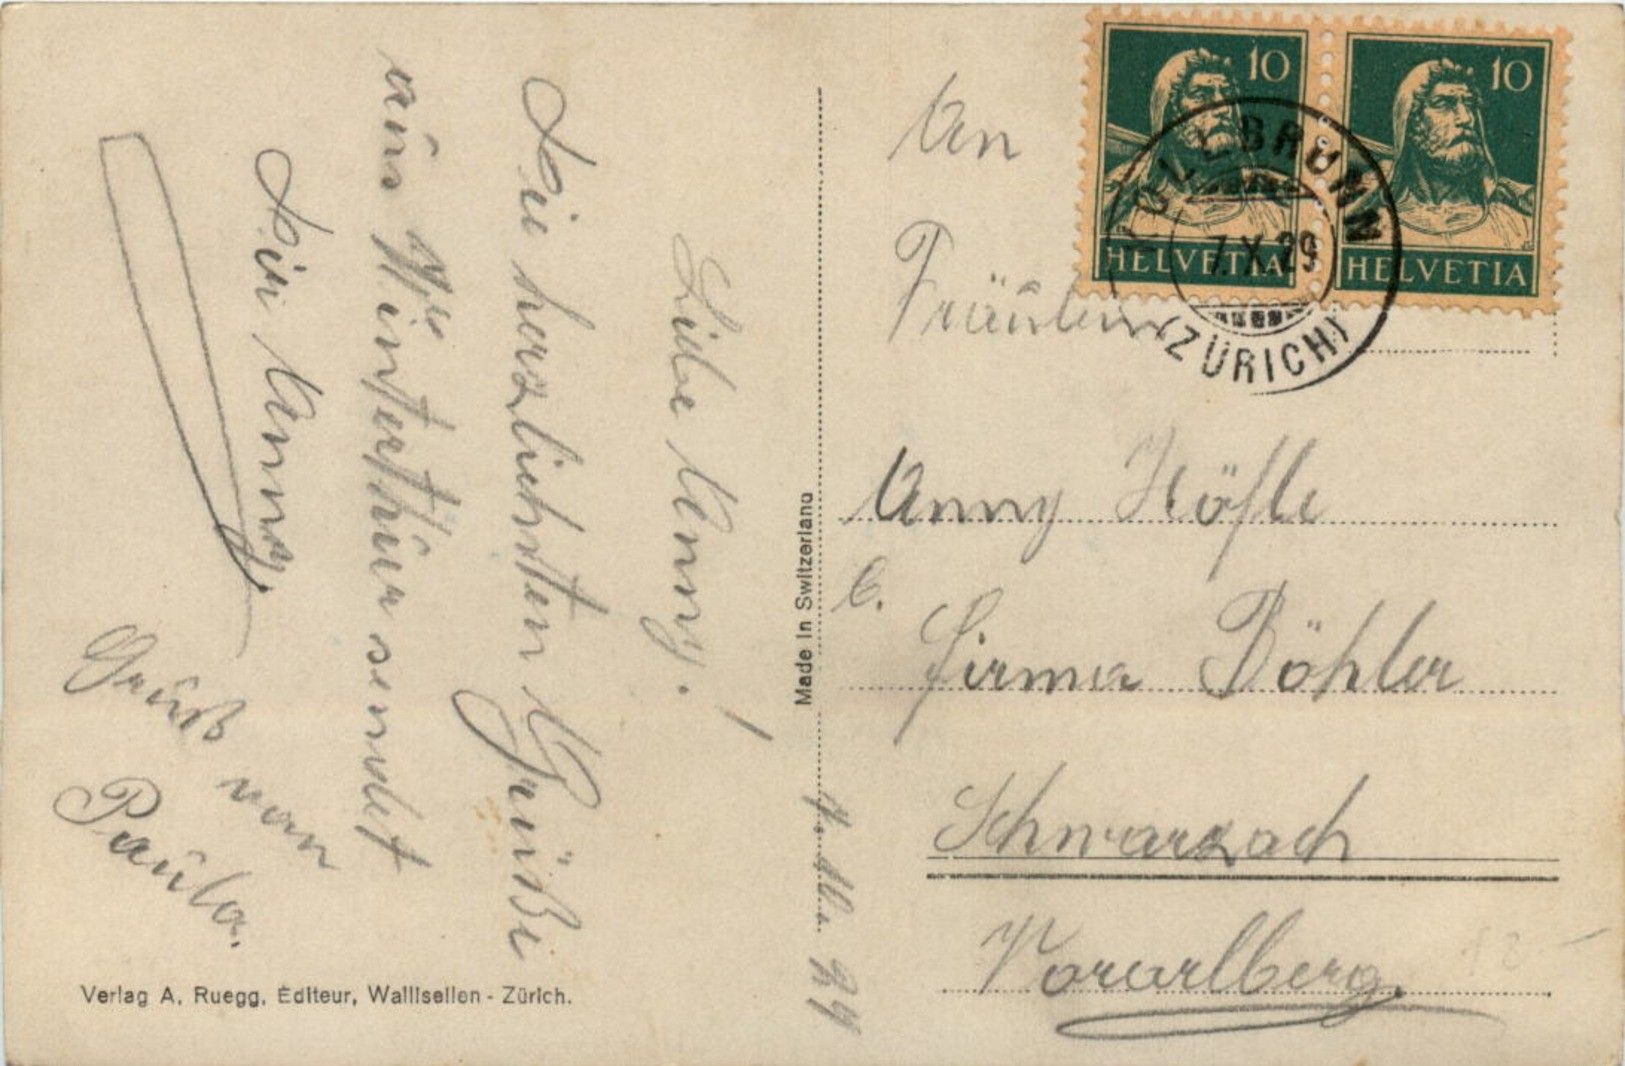 Liebe Anny.!
Die herzlichsten Grüße
aus Winterthur sendet
Dir Anna.
Gruß von
Paula.
7. 10. 29
Verlag A. Ruegg, Editeur, Wallisellen - Zürich.
Made in Switzerland
10 10
HELVETIA HELVETIA
KOLLBRUNN
7.X.29
(ZÜRICH)
An
Fräulein
Anny Höfle
b.
Firma Böhler
Schwarzach
Vorarlberg.